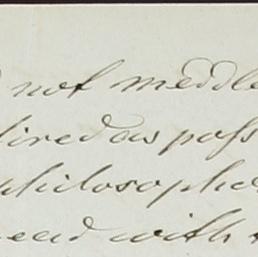 not meddle
tired as poss
philosophe
need with